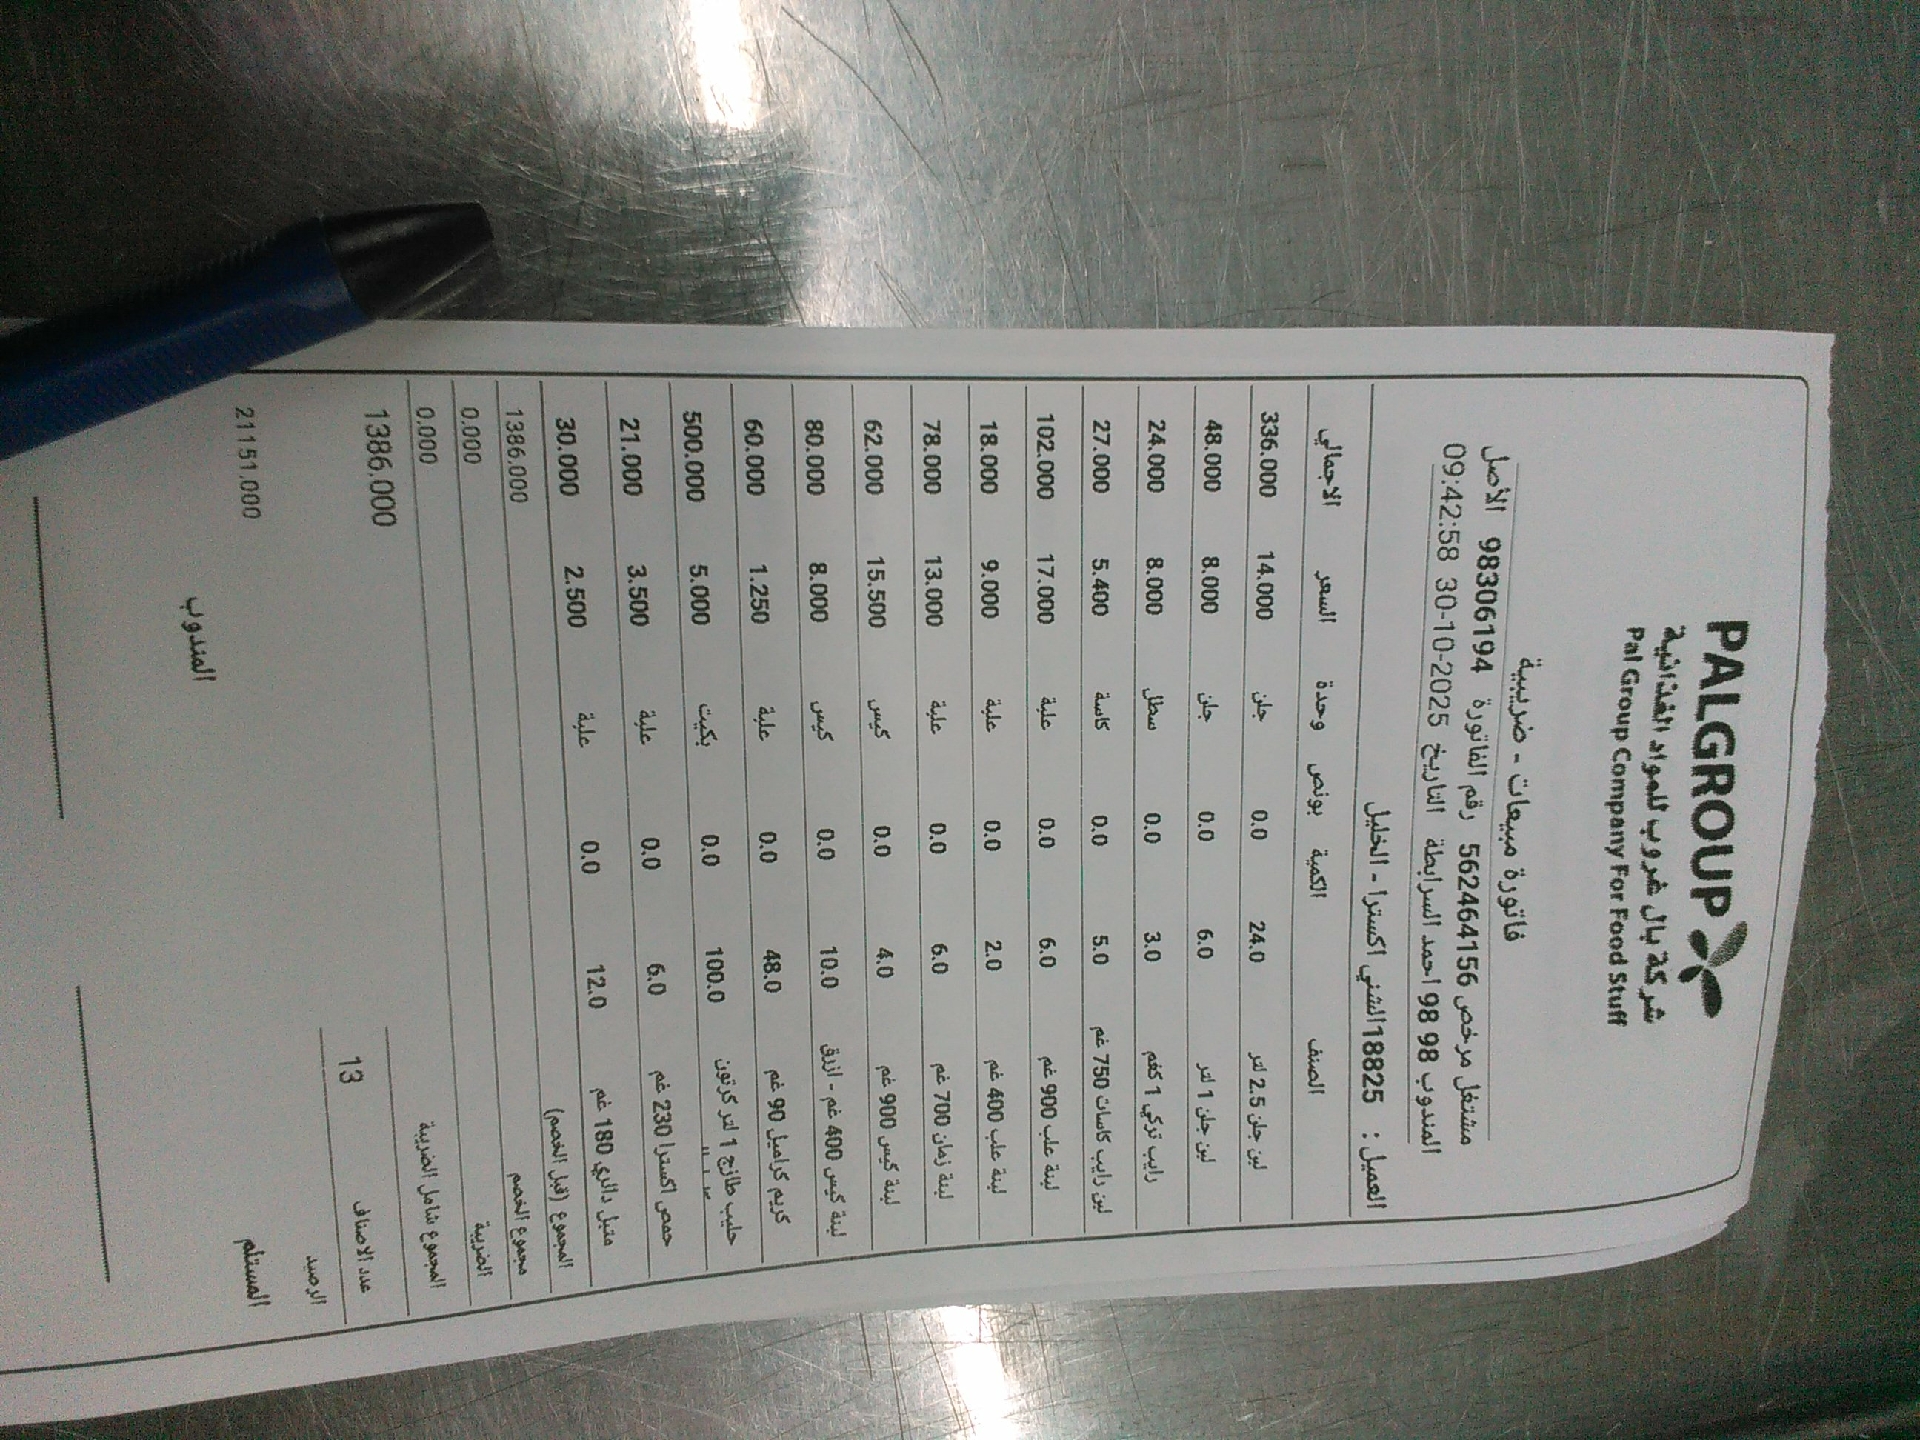 PALGROUP
شركة بال غروب للمواد الغذائية
Pal Group Company For Food Stuff
فاتورة مبيعات - ضريبية
مشتغل مرخص 562464156 رقم الفاتورة 98306194 الأصل
المندوب 98 98 احمد السرابطة التاريخ 30-10-2025 09:42:58
العميل : 18825 الشني اكسترا - الخليل
الصنف الكمية بونص وحدة السعر الاجمالي
لبن جلن 2.5 لتر 24.0 0.0 جلن 14.000 336.000
لبن جلن 1 لتر 6.0 0.0 جلن 8.000 48.000
رايب تركي 1 كغم 3.0 0.0 سطل 8.000 24.000
لبن رايب كاسات 750 غم 5.0 0.0 كاسة 5.400 27.000
لبنة علب 900 غم 6.0 0.0 علبة 17.000 102.000
لبنة علب 400 غم 2.0 0.0 علبة 9.000 18.000
لبنة زمان 700 غم 6.0 0.0 علبة 13.000 78.000
لبنة كيس 900 غم 4.0 0.0 كيس 15.500 62.000
لبنة كيس 400 غم - ازرق 10.0 0.0 كيس 8.000 80.000
كريم كراميل 90 غم 48.0 0.0 علبة 1.250 60.000
حليب طازج 1 لتر كرتون 100.0 0.0 بكيت 5.000 500.000
حمص اكسترا 230 غم 6.0 0.0 علبة 3.500 21.000
متبل دائري 180 غم 12.0 0.0 علبة 2.500 30.000
المجموع (قبل الخصم) 1386.000
مجموع الخصم 0.000
الضريبة 0.000
المجموع شامل الضريبة 1386.000
عدد الاصناف 13
الرصيد 21151.000
المستلم المندوب